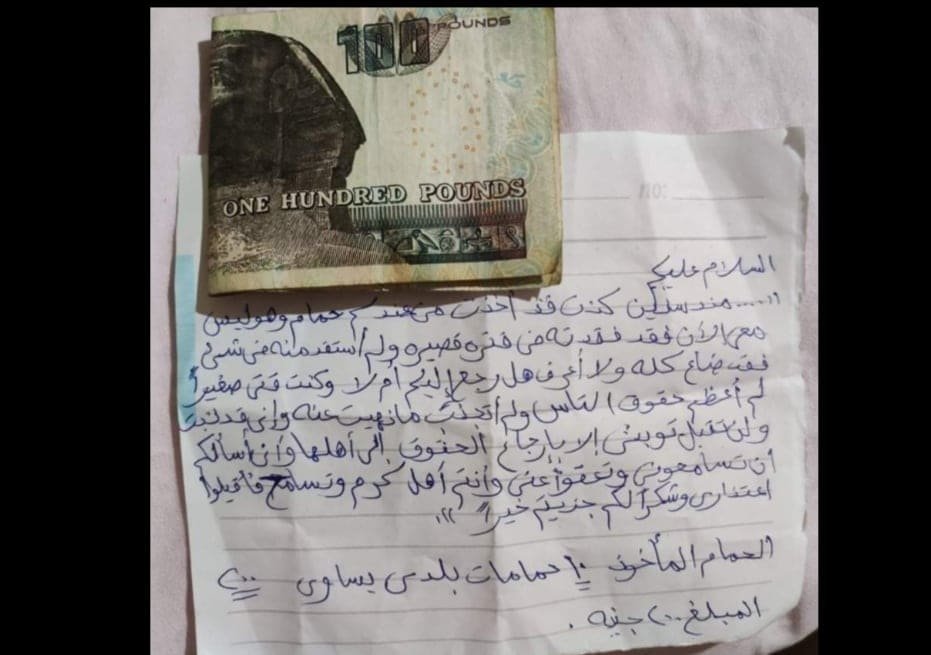 100 POUNDS
ONE HUNDRED POUNDS
NO:
السلام عليكم
"..... منذ سنين كنت قد أخذت من عندكم حمام وهو ليس
معى الآن فقد فقدته فى فتره قصيره ولم أستفد منه فى شئ
فقد ضاع كله ولا أعرف هل رجع إليكم أم لا وكنت فتى صغيراً
لم أعظم حقوق الناس ولم أتجنب ما نهيت عنه وإنى قد تبت
ولن تقبل توبتى إلا بإرجاع الحقوق إلى أهلها وأنى أسألكم
أن تسامحونى وتعفوا عنى وأنتم أهل كرم وتسامح فأقبلوا
اعتذارى وشكراً لكم جزيتم خيراً".
الحمام المأخوذ ١٠ حمامات بلدى يساوى ٢٠٠
المبلغ ٢٠٠ جنيه .